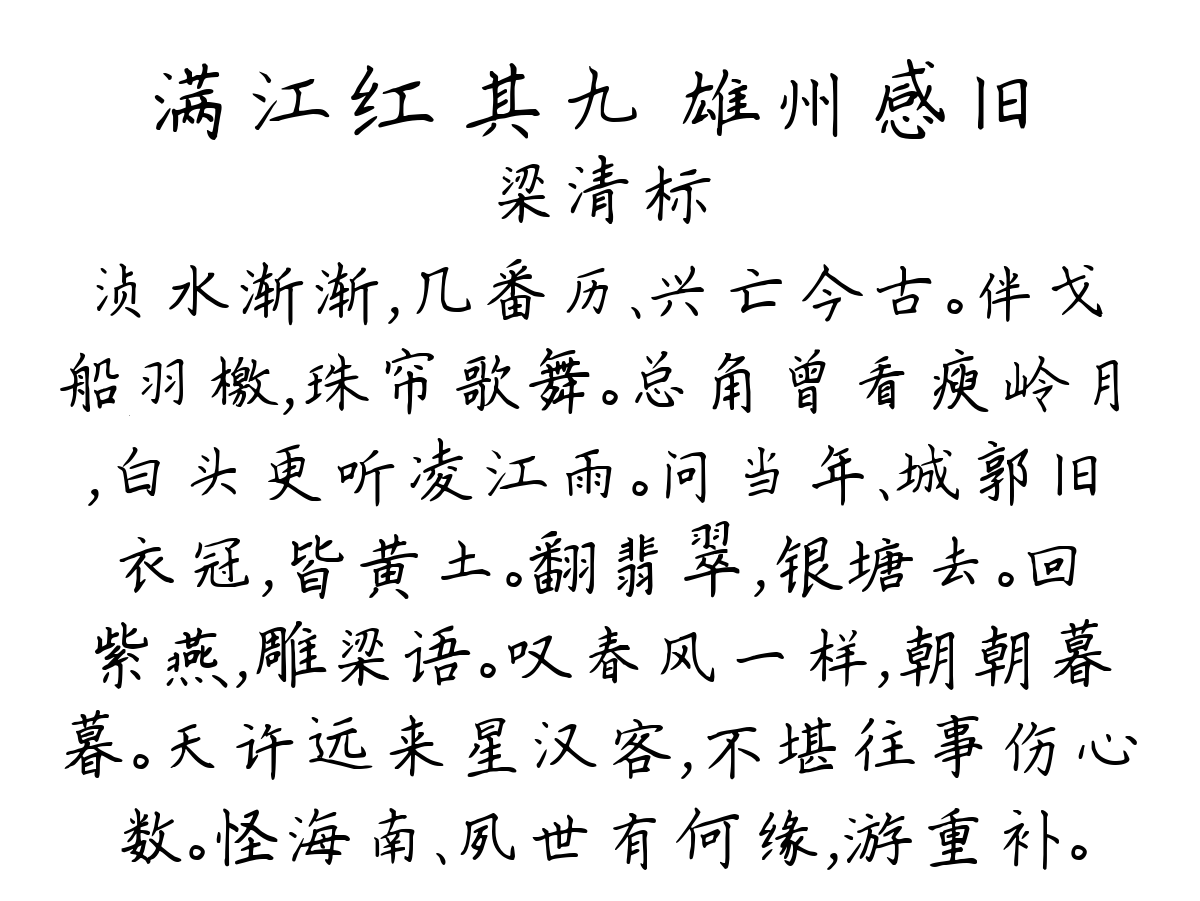 满江红 其九 雄州感旧
梁清标
浈水渐渐,几番历、兴亡今古。伴戈
船羽檄,珠帘歌舞。总角曾看庾岭月
,白头更听凌江雨。问当年、城郭旧
衣冠,皆黄土。翻翡翠,银塘去。回
紫燕,雕梁语。叹春风一样,朝朝暮
暮。天许远来星汉客,不堪往事伤心
数。怪海南、夙世有何缘,游重补。